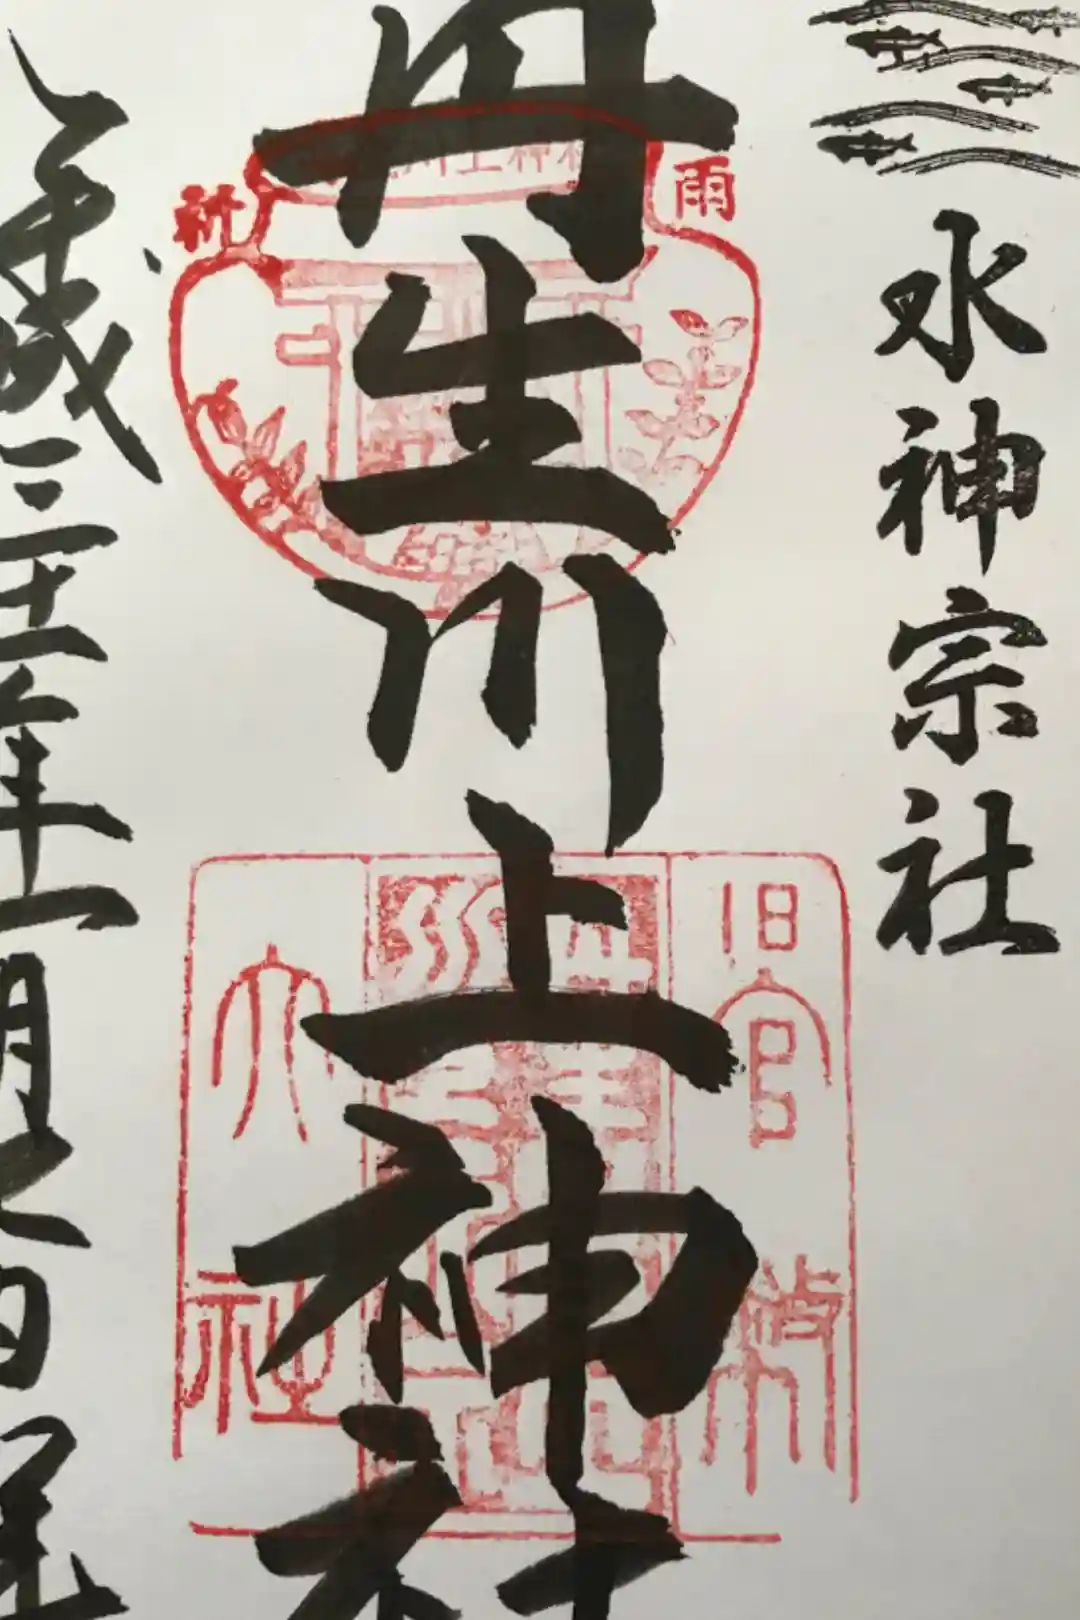 水神宗社
丹生川上神社
雨
社
川上神社
旧官幣
大社
平成三十一年一月
日